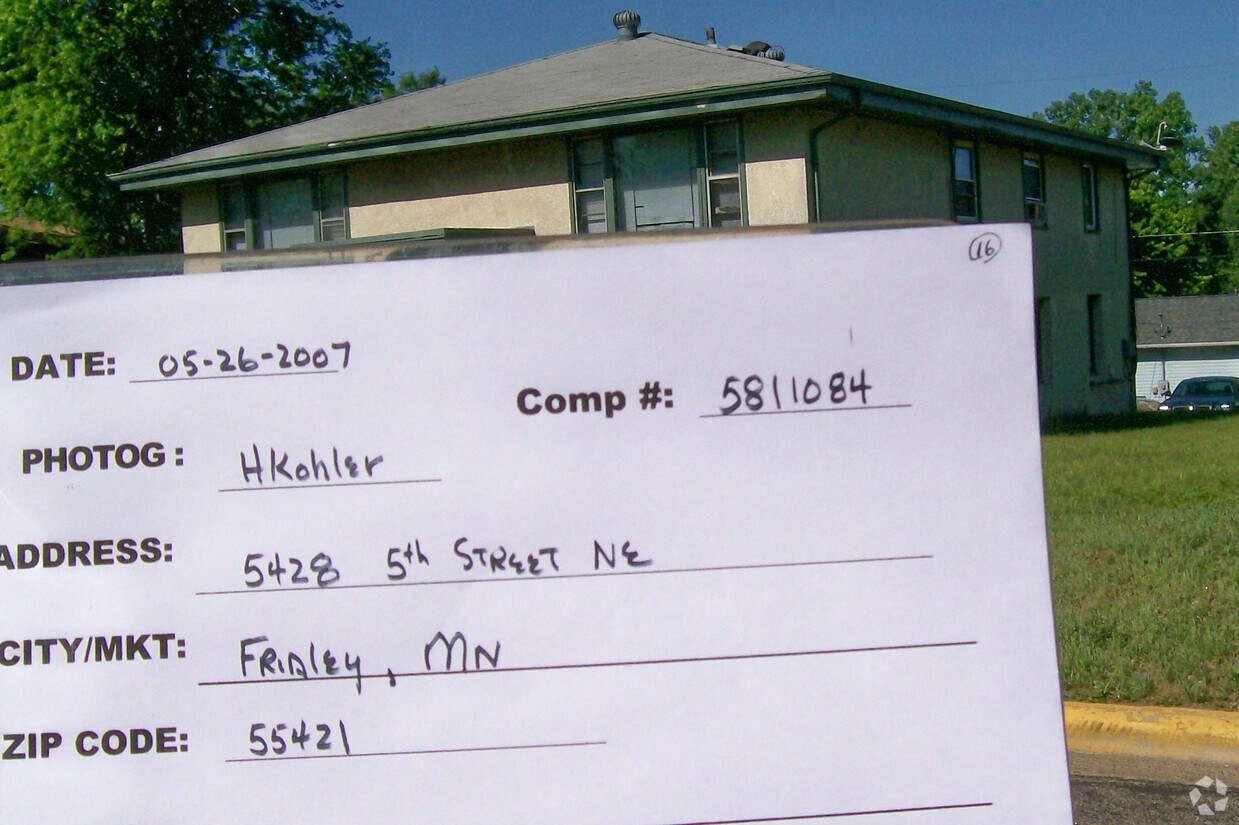 16
DATE: 05-26-2007
Comp #: 5811084
PHOTOG: HKohler
ADDRESS: 5428 5th STREET NE
CITY/MKT: FRIDLEY, MN
ZIP CODE: 55421